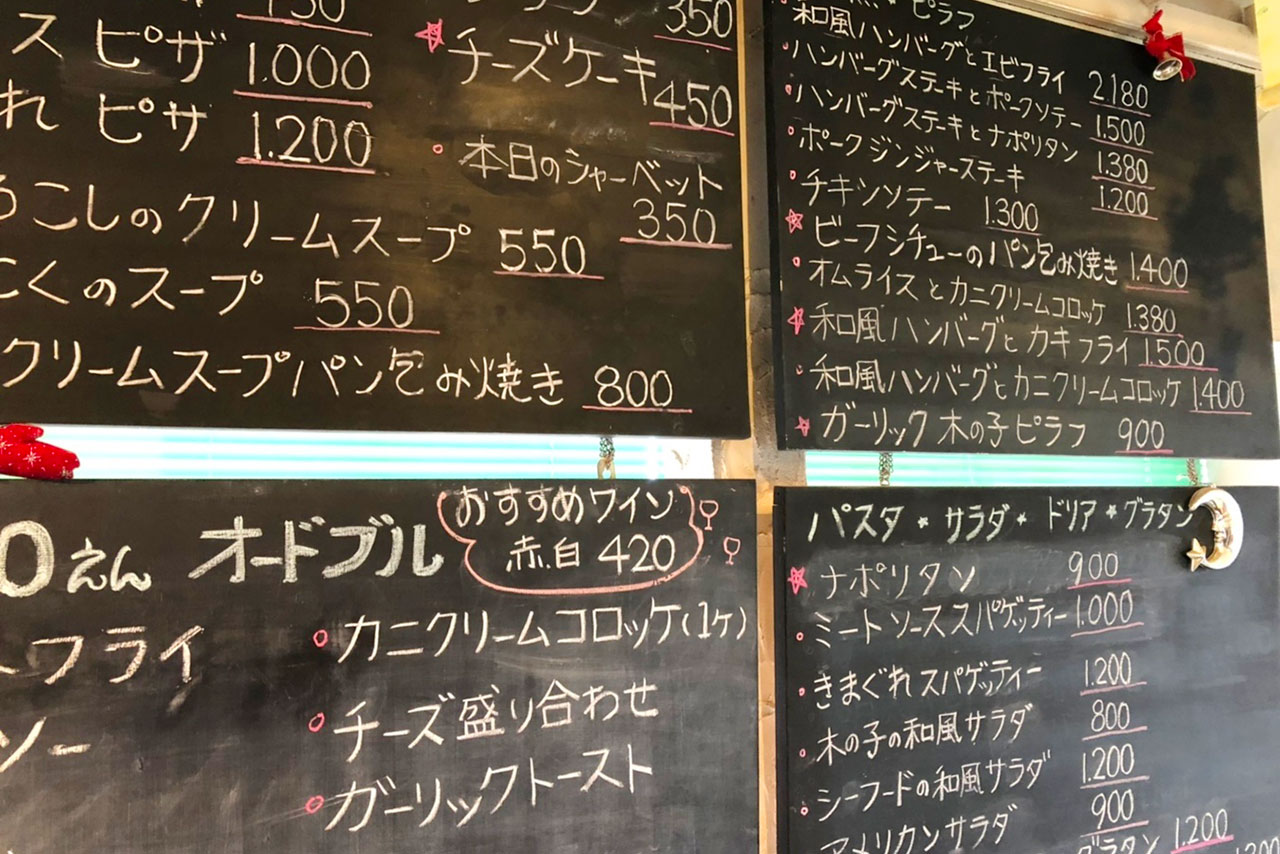 ス ピザ 1.000
れ ピザ 1.200
うこしのクリームスープ 550
くのスープ 550
クリームスープパン包み焼き 800
350
チーズケーキ 450
本日のシャーベット
350
ピラフ
和風ハンバーグとエビフライ 2.180
ハンバーグステーキとポークソテー 1.500
ハンバーグステーキとナポリタン 1.380
ポークジンジャーステーキ 1.200
チキンソテー 1.300
ビーフシチューのパン包み焼き 1.400
オムライスとカニクリームコロッケ 1.380
和風ハンバーグとカキフライ 1.500
和風ハンバーグとカニクリームコロッケ 1.400
ガーリック木の子ピラフ 900
0えん オードブル
おすすめワイン
赤.白 420
フライ
ソー
カニクリームコロッケ(1ケ)
チーズ盛り合わせ
ガーリックトースト
パスタ・サラダ・ドリア・グラタン
ナポリタン 900
ミートソーススパゲッティー 1.000
きまぐれスパゲッティー 1.200
木の子の和風サラダ 800
シーフードの和風サラダ 1.200
アメリカンサラダ 900
グラタン 1.200